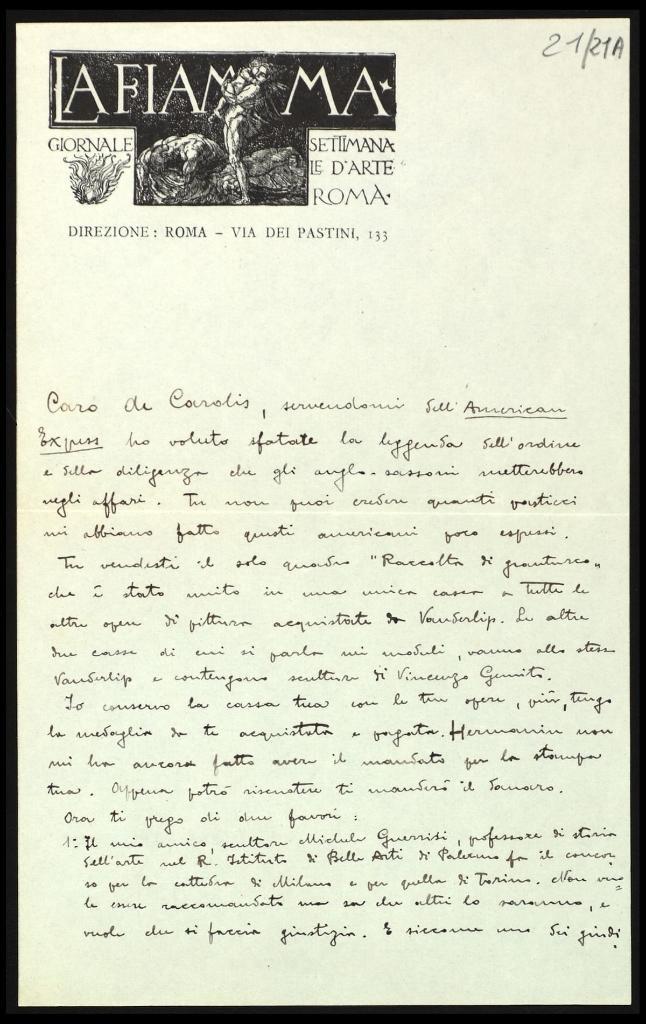 21/21A
LA FIAMMA
GIORNALE SETTIMANA
LE D'ARTE
ROMA
DIREZIONE: ROMA – VIA DEI PASTINI, 133
Caro de Carolis, servendomi dell'American
Express ho voluto sfatate la leggenda dell'ordine
e della diligenza che gli anglo-sassoni metterebbero
negli affari. Tu non puoi credere quanti pasticci
mi abbiano fatto questi americani poco espressi.
Tu vendesti il solo quadro "Raccolta di granturco"
che è stato unito in una unica cassa a tutte le
altre opere di pittura acquistate da Vanderlip. Le altre
due casse di cui si parla nei moduli, vanno allo stesso
Vanderlip e contengono sculture di Vincenzo Gemito.
Io conservo la cassa tua con le tue opere, più, tengo
la medaglia da te acquistata e pagata. Hermanin non
mi ha ancora fatto avere il mandato per la stampa
tua. Appena potrò riscuotere ti manderò il danaro.
Ora ti prego di due favori:
1º Il mio amico, scultore Michele Guerrisi, professore di storia
dell'arte nel R. Istituto di Belle Arti di Palermo fa il concor
so per la cattedra di Milano e per quella di Torino. Non vuo=
le essere raccomandato ma sa che altri lo saranno, e
vuole che si faccia giustizia. E siccome uno dei giudi